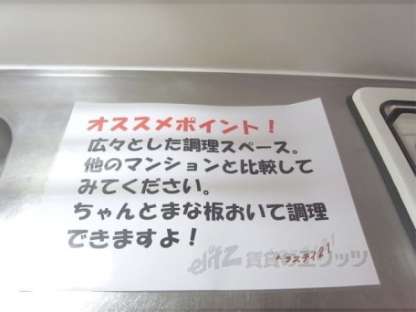 オススメポイント！
広々とした調理スペース。
他のマンションと比較して
みてください。
ちゃんとまな板おいて調理
できますよ！
elitz 賃貸のエリッツ